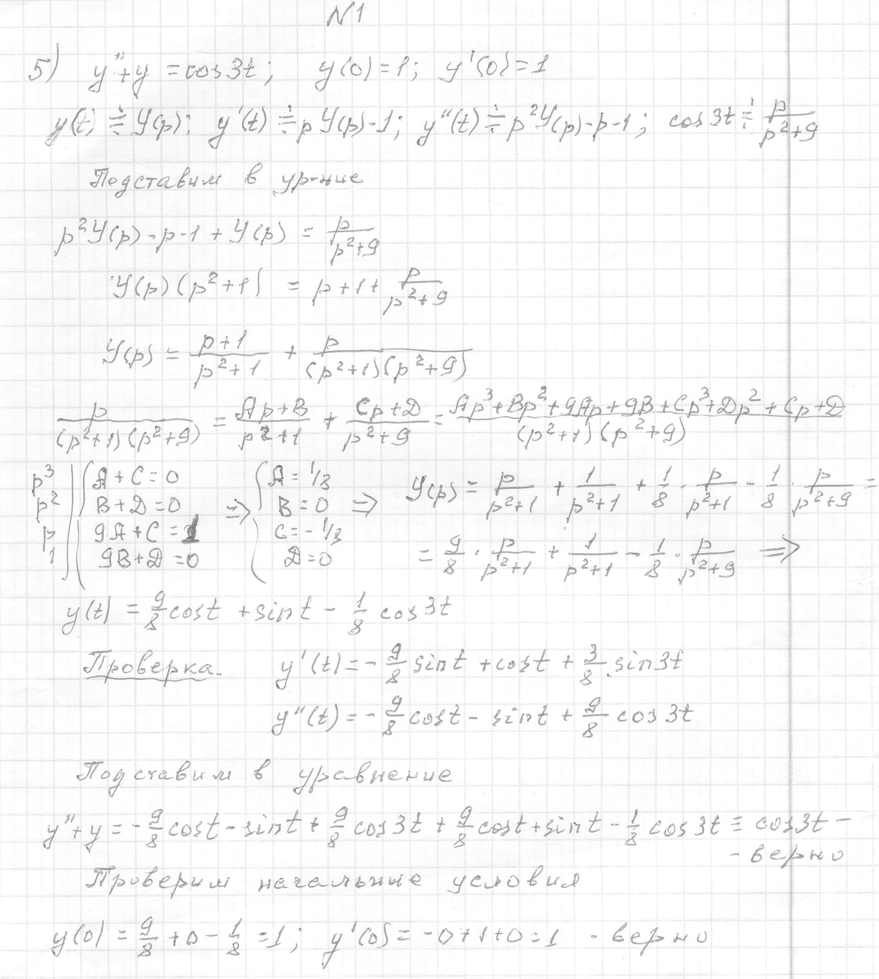 N1
5) y''+y = cos3t; y(0)=1; y'(0)=1
y(t) ≓ Y(p); y'(t) ≓ pY(p)-1; y''(t) ≓ p²Y(p)-p-1; cos3t ≓ p/(p²+9)
Подставим в ур-ние
p²Y(p)-p-1+Y(p) = p/(p²+9)
Y(p)(p²+1) = p+1+ p/(p²+9)
Y(p) = (p+1)/(p²+1) + p/((p²+1)(p²+9))
p/((p²+1)(p²+9)) = (Ap+B)/(p²+1) + (Cp+D)/(p²+9) = (Ap³+Bp²+9Ap+9B+Cp³+Dp²+Cp+D)/((p²+1)(p²+9))
p³ | A+C=0 A=1/8
p² | B+D=0 ⇒ B=0 ⇒ Y(p) = p/(p²+1) + 1/(p²+1) + 1/8 · p/(p²+1) - 1/8 · p/(p²+9) =
p | 9A+C=1 C=-1/8
1 | 9B+D=0 D=0 = 9/8 · p/(p²+1) + 1/(p²+1) - 1/8 · p/(p²+9) ⇒
y(t) = 9/8 cost + sint - 1/8 cos3t
Проверка. y'(t) = -9/8 sint + cost + 3/8 sin3t
y''(t) = -9/8 cost - sint + 9/8 cos3t
Подставим в уравнение
y''+y = -9/8 cost - sint + 9/8 cos3t + 9/8 cost + sint - 1/8 cos3t ≡ cos3t -
- верно
Проверим начальные условия
y(0) = 9/8 + 0 - 1/8 = 1; y'(0) = -0+1+0=1 - верно